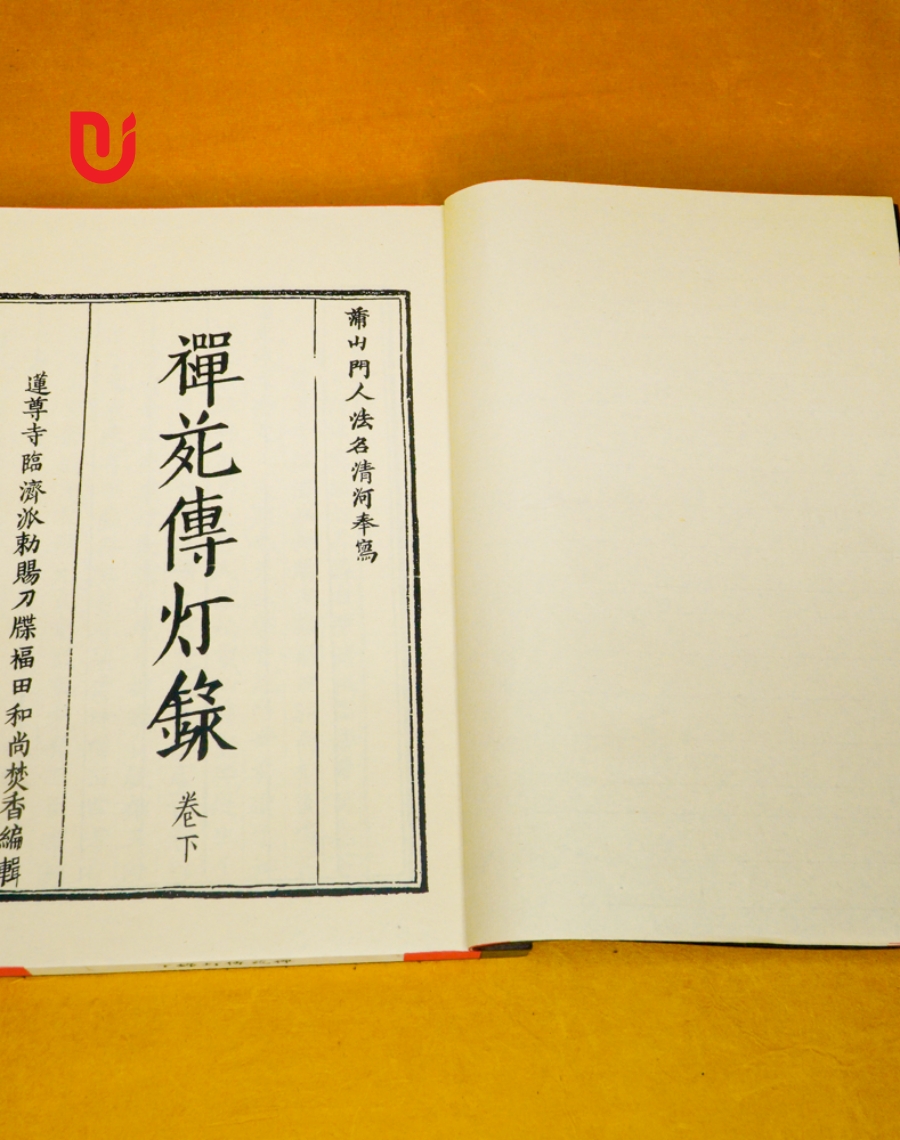 蒲山門人法名清河奉寫
禪苑傳灯錄
卷下
蓮尊寺臨濟派勅賜刀牒福田和尚焚香編輯